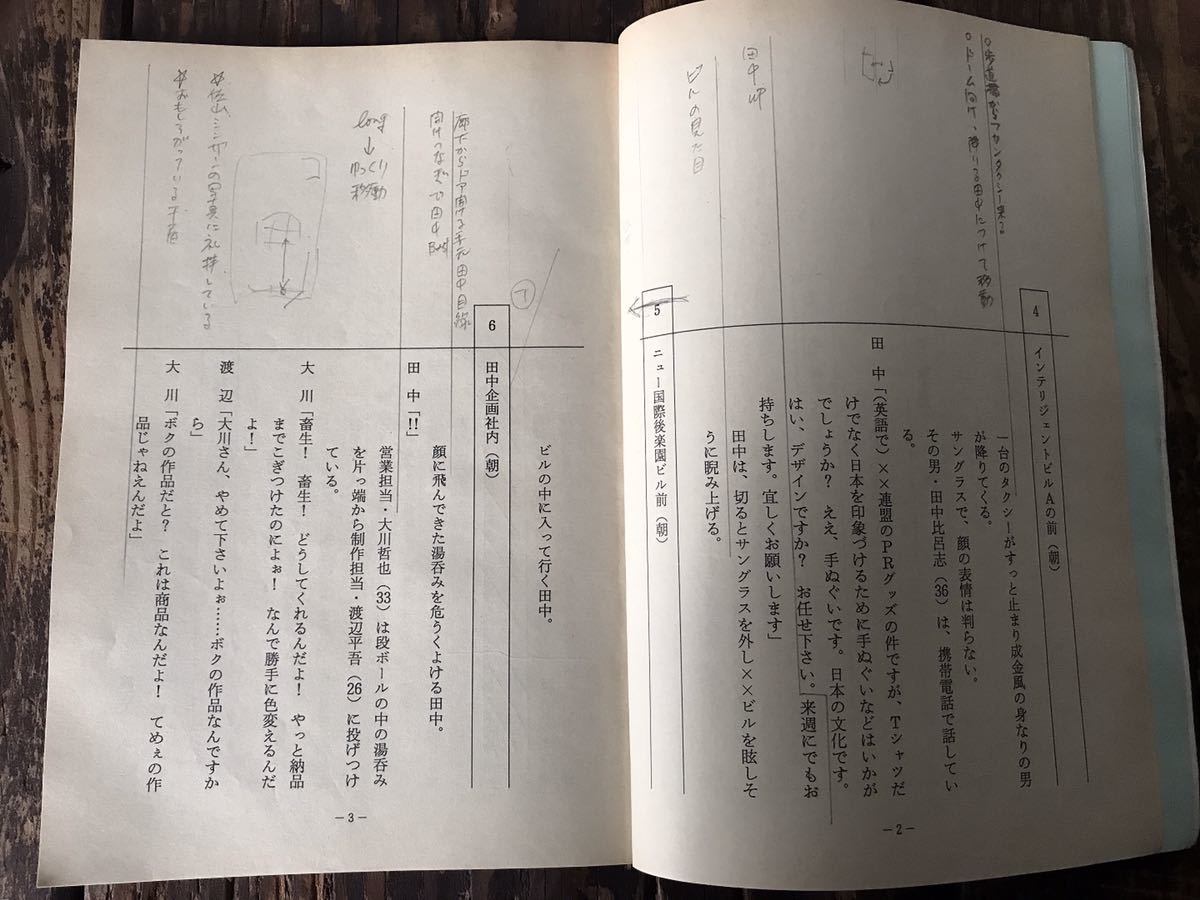 ○歩道橋からフカンタクシー来る
○ドーム向け、降りる田中につけて移動
田中 UP
ビルの見た目
4
インテリジェントビルAの前（朝）
一台のタクシーがすっと止まり成金風の身なりの男
が降りてくる。
サングラスで、顔の表情は判らない。
その男・田中比呂志（36）は、携帯電話で話してい
る。
田　中「（英語で）××連盟のPRグッズの件ですが、Tシャツだ
けでなく日本を印象づけるために手ぬぐいなどはいかが
でしょうか？　ええ、手ぬぐいです。日本の文化です。
はい、デザインですか？　お任せ下さい。来週にでもお
持ちします。宜しくお願いします」
田中は、切るとサングラスを外し××ビルを眩しそ
うに睨み上げる。
5
ニュー国際後楽園ビル前（朝）
―2―
ビルの中に入って行く田中。
廊下からドア開ける手元 田中目線
開けつなぎで田中 Bust
long
↓
ゆっくり
移動
6
田中企画社内（朝）
顔に飛んできた湯呑みを危うくよける田中。
田　中「!!」
営業担当・大川哲也（33）は段ボールの中の湯呑み
を片っ端から制作担当・渡辺平吾（26）に投げつけ
ている。
大　川「畜生！　畜生！　どうしてくれるんだよ！　やっと納品
までこぎつけたのによぉ！　なんで勝手に色変えるんだ
よ！」
渡　辺「大川さん、やめて下さいよぉ……ボクの作品なんですか
ら」
大　川「ボクの作品だと？　これは商品なんだよ！　てめぇの作
品じゃねえんだよ」
の写真に礼拝している
☆おもしろがっている
―3―